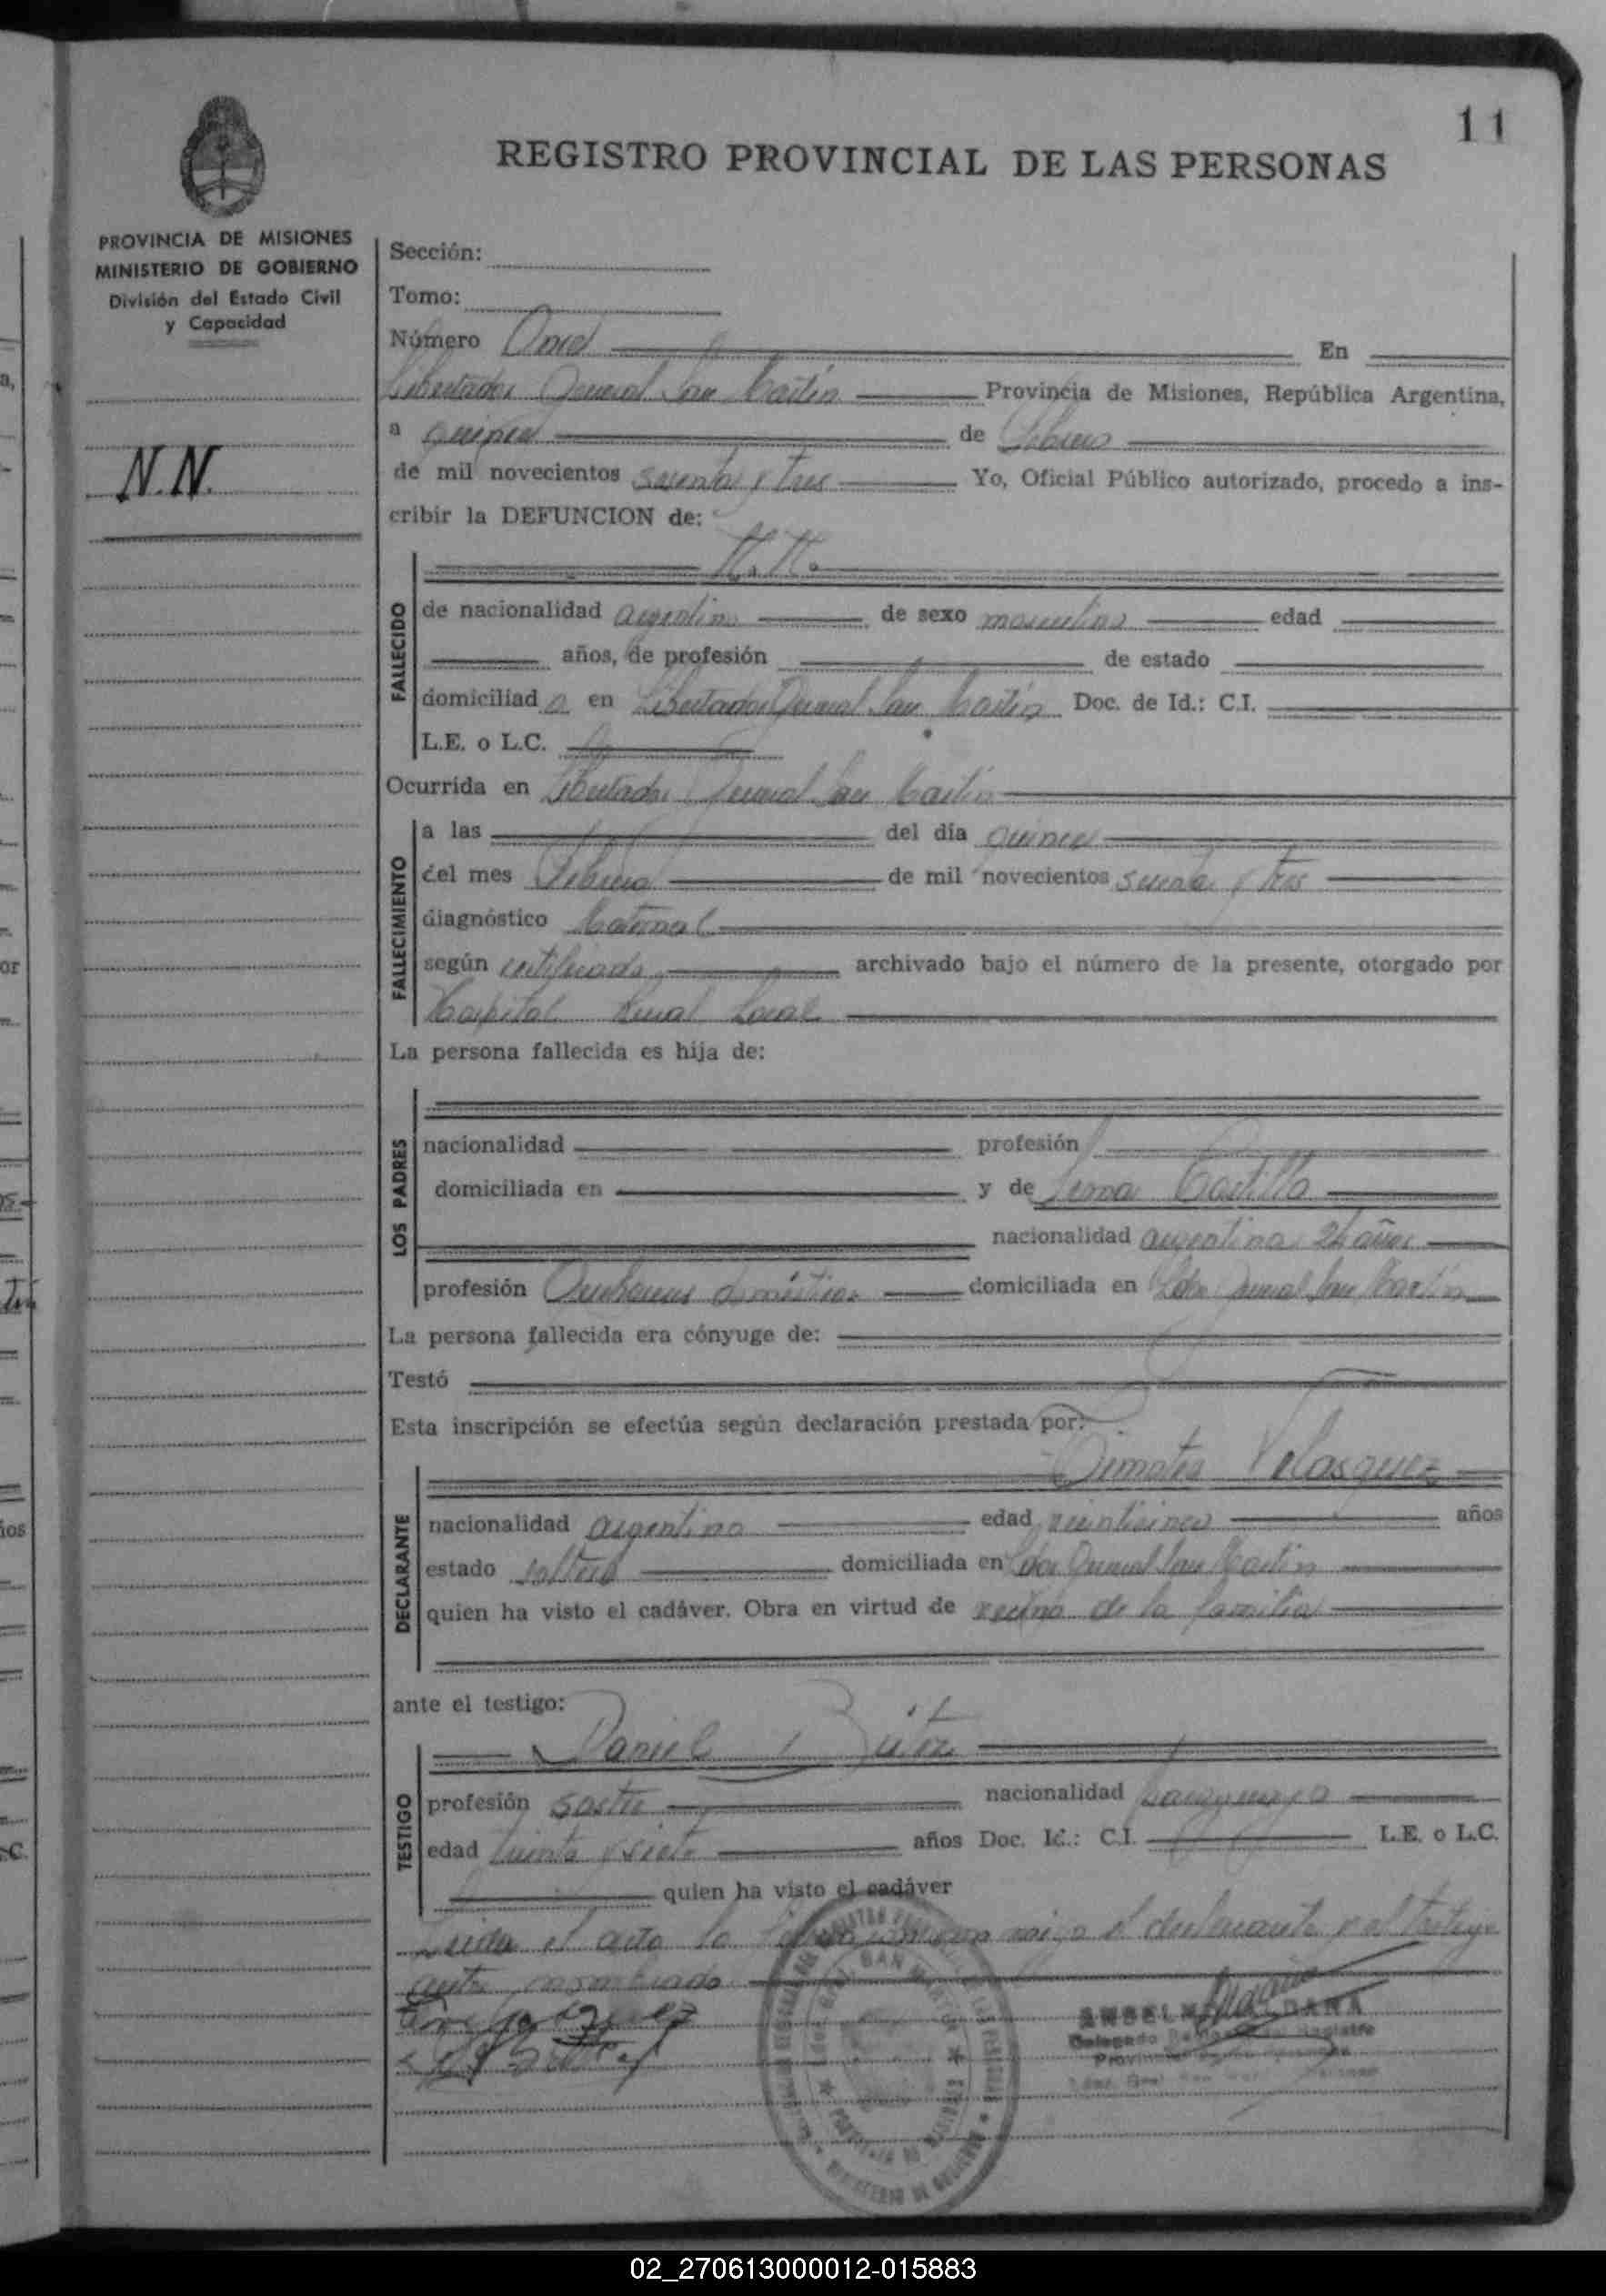 11
REGISTRO PROVINCIAL DE LAS PERSONAS
PROVINCIA DE MISIONES
MINISTERIO DE GOBIERNO
División del Estado Civil
y Capacidad
N.N.
Sección:
Tomo:
Número Once En
Libertador General San Martín Provincia de Misiones, República Argentina,
a quince de Febrero
de mil novecientos sesenta y tres Yo, Oficial Público autorizado, procedo a ins-
cribir la DEFUNCION de:
N.N.
FALLECIDO
de nacionalidad argentino de sexo masculino edad
años, de profesión de estado
domiciliad o en Libertador General San Martín Doc. de Id.: C.I.
L.E. o L.C.
Ocurrida en Libertador General San Martín
FALLECIMIENTO
a las del día quince
del mes Febrero de mil novecientos sesenta y tres
diagnóstico
según certificado archivado bajo el número de la presente, otorgado por
Hospital Rural Local
La persona fallecida es hija de:
LOS PADRES
nacionalidad profesión
domiciliada en y de
nacionalidad argentina 24 años
profesión Quehaceres domésticos domiciliada en Ldor General San Martín
La persona fallecida era cónyuge de:
Testó
Esta inscripción se efectúa según declaración prestada por:
Velasquez
DECLARANTE
nacionalidad argentino edad veinticinco años
estado soltero domiciliada en Ldor General San Martín
quien ha visto el cadáver. Obra en virtud de vecino de la familia
ante el testigo:
Daniel
TESTIGO
profesión sastre nacionalidad paraguayo
edad treinta y siete años Doc. Id.: C.I. L.E. o L.C.
quien ha visto el cadáver
Leida el acta la firman conmigo el declarante y el testigo
antes nombrado
Delegado
02_270613000012-015883